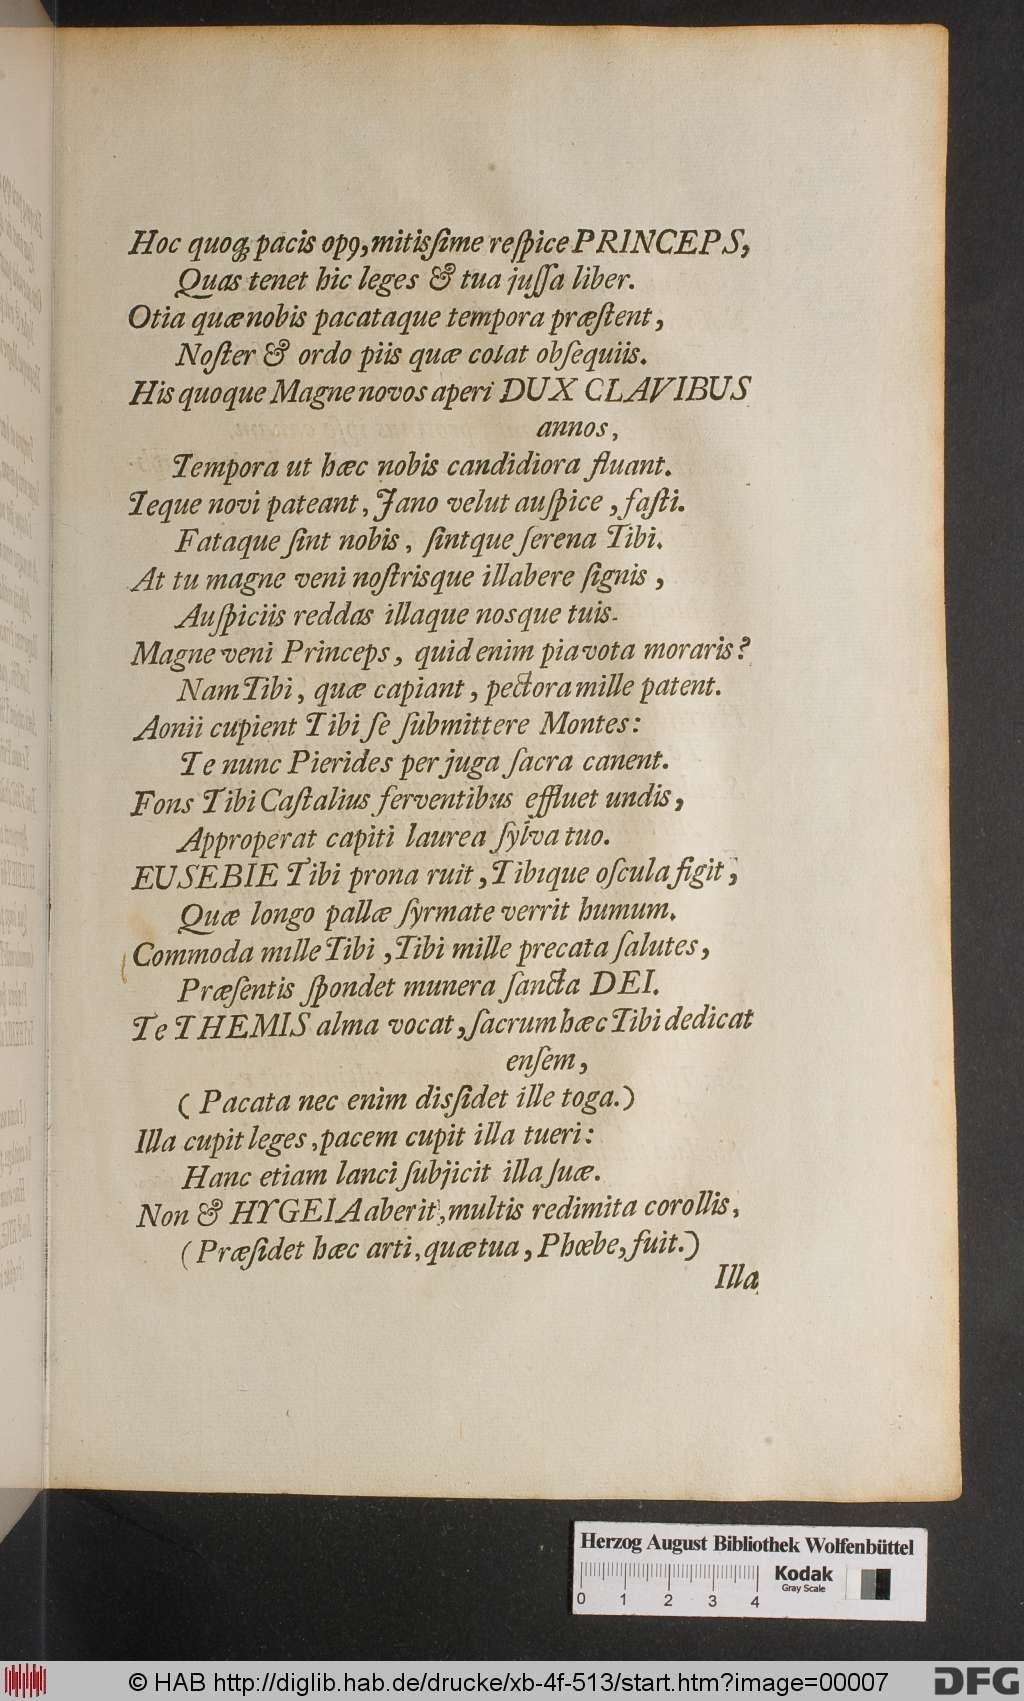 Hoc quoq; pacis op9, mitisſime reſpice PRINCEPS,
Quas tenet hic leges & tua juſſa liber.
Otia quæ nobis pacataque tempora præſtent,
Noſter & ordo piis quæ colat obſequiis.
His quoque Magne novos aperi DUX CLAVIBUS
annos,
Tempora ut hæc nobis candidiora fluant.
Teque novi pateant, Jano velut auſpice, faſti.
Fataque ſint nobis, ſintque ſerena Tibi.
At tu magne veni noſtrisque illabere ſignis,
Auſpiciis reddas illaque nosque tuis.
Magne veni Princeps, quid enim pia vota moraris?
Nam Tibi, quæ capiant, pectora mille patent.
Aonii cupient Tibi ſe ſubmittere Montes:
Te nunc Pierides per juga ſacra canent.
Fons Tibi Caſtalius ferventibus effluet undis,
Approperat capiti laurea ſylva tuo.
EUSEBIE Tibi prona ruit, Tibique oſcula figit,
Quæ longo pallæ ſyrmate verrit humum.
Commoda mille Tibi, Tibi mille precata ſalutes,
Præſentis ſpondet munera ſancta DEI.
Te THEMIS alma vocat, ſacrum hæc Tibi dedicat
enſem,
(Pacata nec enim disſidet ille toga.)
Illa cupit leges, pacem cupit illa tueri:
Hanc etiam lanci ſubjicit illa ſuæ.
Non & HYGEIA aberit, multis redimita corollis,
(Præſidet hæc arti, quæ tua, Phœbe, fuit.)
Illa
Herzog August Bibliothek Wolfenbüttel
Kodak
Gray Scale
0 1 2 3 4
© HAB http://diglib.hab.de/drucke/xb-4f-513/start.htm?image=00007
DFG